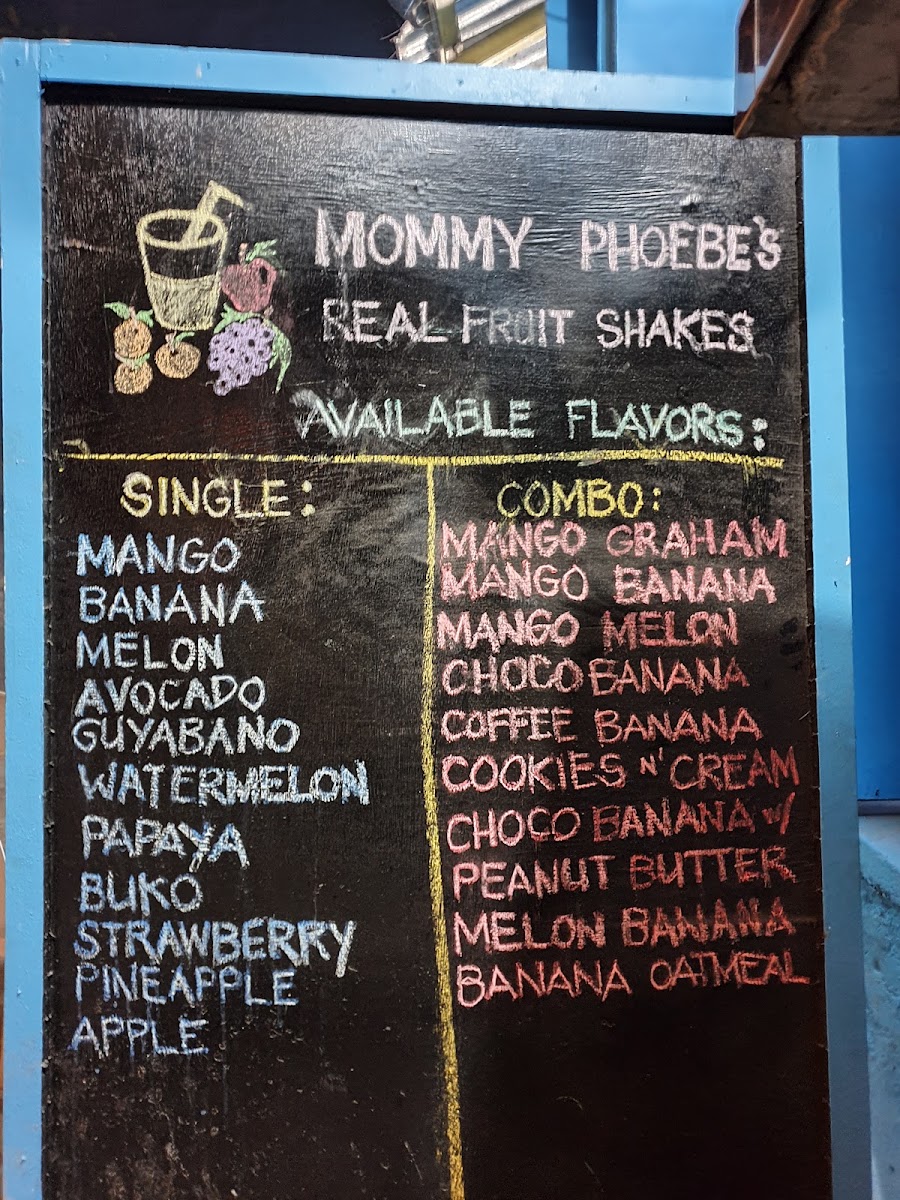 MOMMY PHOEBE'S
REAL FRUIT SHAKES
AVAILABLE FLAVORS:
SINGLE:
MANGO
BANANA
MELON
AVOCADO
GUYABANO
WATERMELON
PAPAYA
BUKO
STRAWBERRY
PINEAPPLE
APPLE
COMBO:
MANGO GRAHAM
MANGO BANANA
MANGO MELON
CHOCO BANANA
COFFEE BANANA
COOKIES N' CREAM
CHOCO BANANA W/
PEANUT BUTTER
MELON BANANA
BANANA OATMEAL